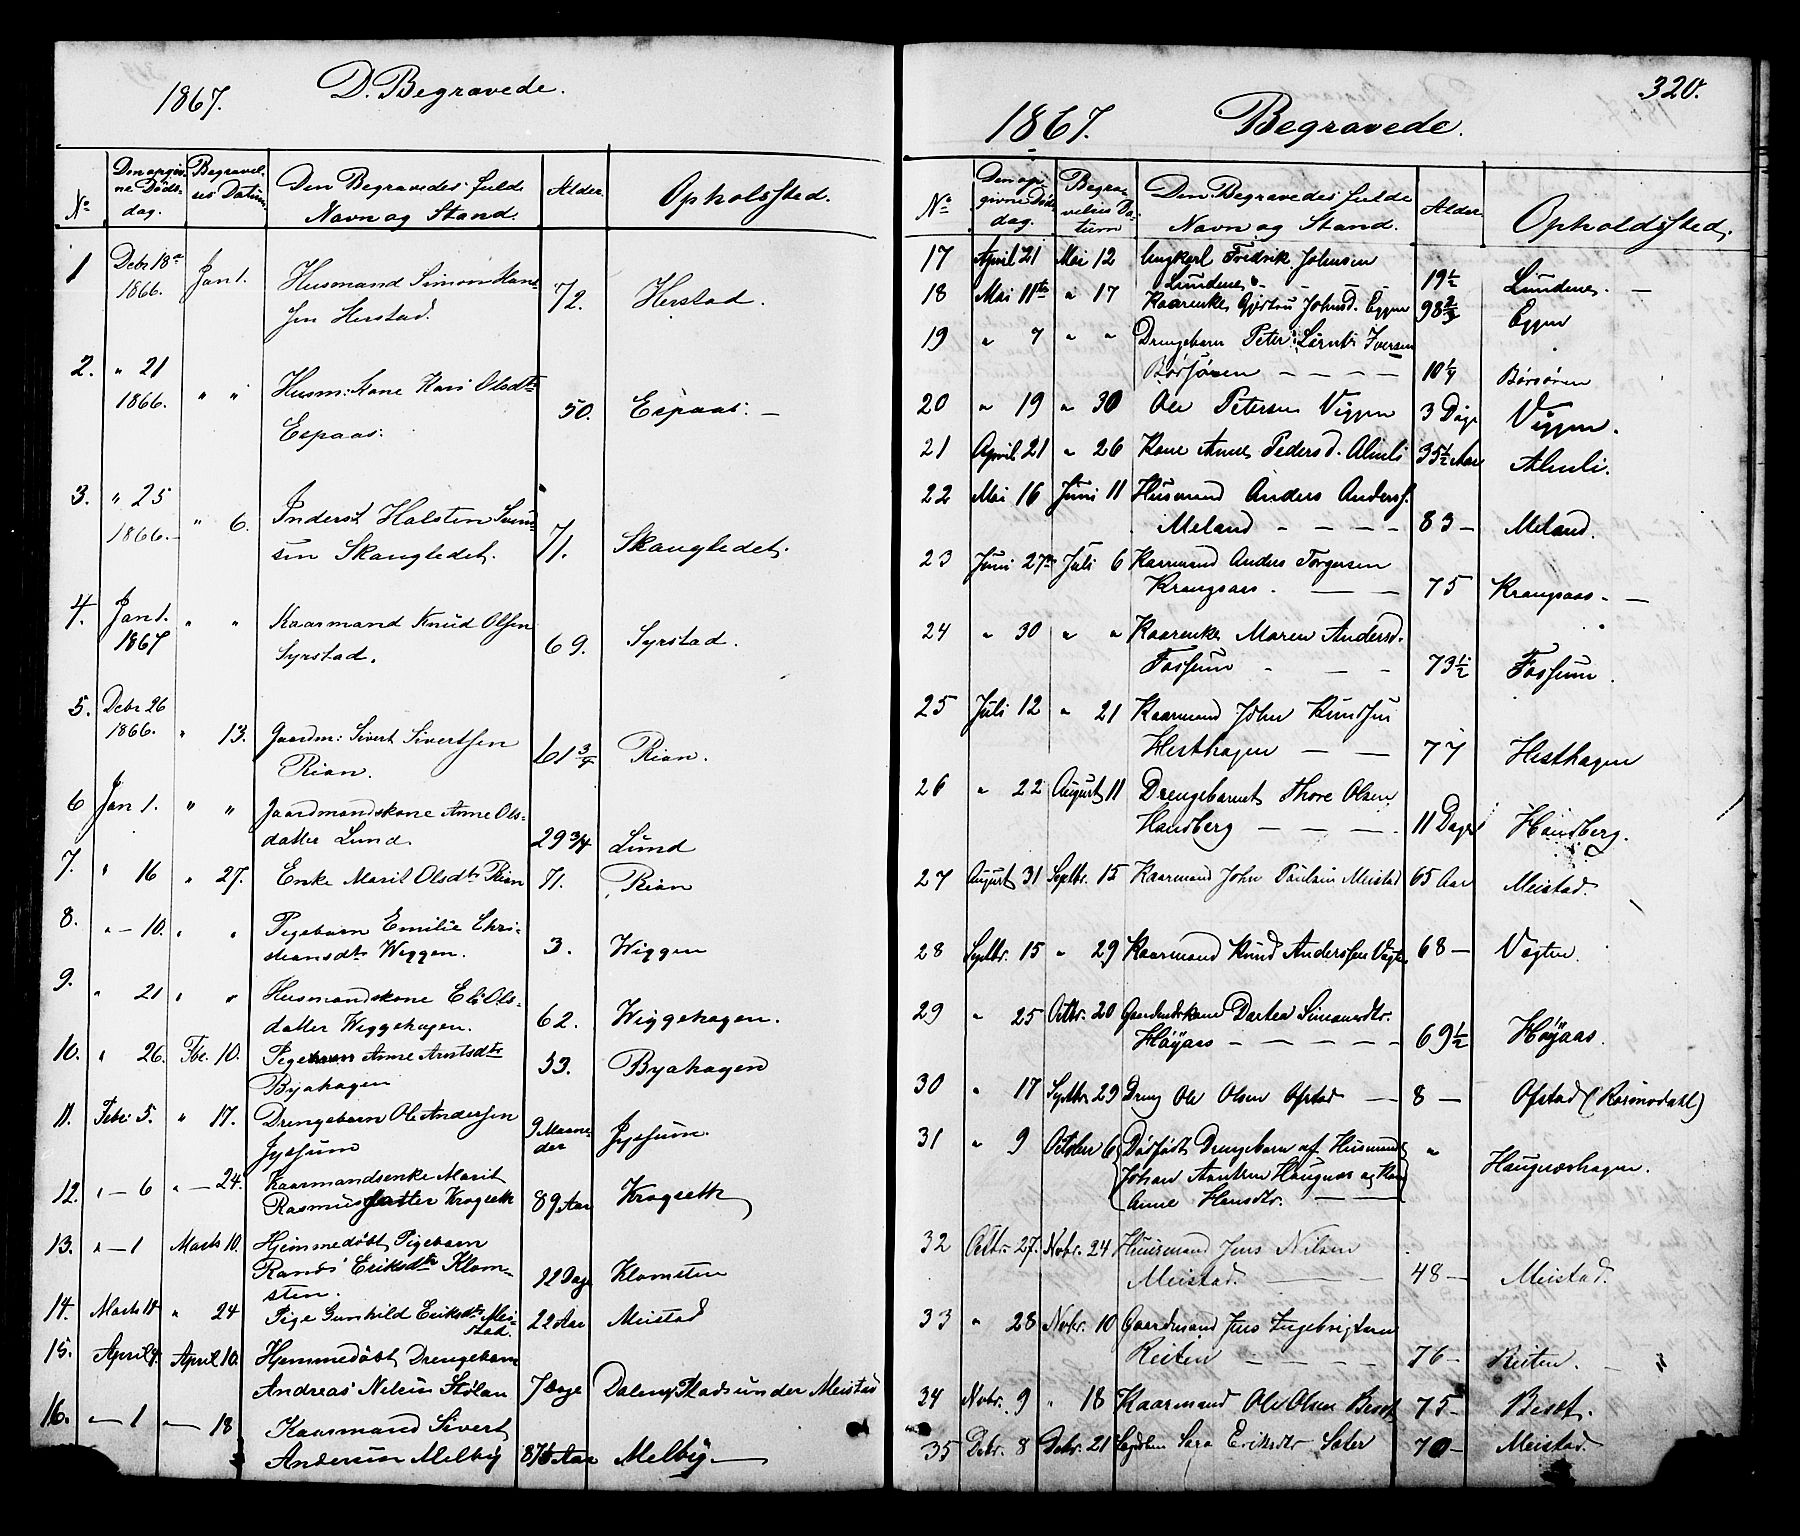 1867. D. Begravede.
No
Den opgiv-
ne Døds-
dag.
Begravel-
ses Datum.
Den Begravedes fulde
Navn og Stand.
Alder.
Opholsted.
1 Debr 18de 1866. Jan 1. Husmand Simon Han-
sen Herstad. 72. Herstad.
2. " 21 1866. " " Husm: Kone Kari Olsdtr
Espaas. 50. Espaas. –
3. " 25 1866. " 6. Inderst Halsten Svend-
sen Skaugledet. 71. Skaugledet.
4. Jan 1. 1867 " " Kaarmand Knud Olsen
Syrstad. 69. Syrstad.
5. Debr 26 1866. " 13. Gaardm: Sivert Sivertsen
Rian. 61 3/4 Rian.
6 Jan 1. " " Gaardmandskone Anne Ols-
datter Lund. 29 3/4 Lund
7. " 16 " 27. Enke Marit Olsdtr Rian 71. Rian
8. " – 10. " " Pigebarn Emilie Chri-
stiansdtr Wiggen. 3. Wiggen
9. " 21 " " Husmandskone Eli Ols-
datter Wiggehagen. 62. Wiggehagen.
10. " 26. Fbr. 10. Pige Anne Arntsdtr
Byahagen 33. Byahagen
11. Febr 5. " 17. Drengebarn Ole Andersen
Jyssum 9 Maane-
der Jyssum.
12. " – 6 " – 24. Kaarmandsenke Marit
Rasmusdatter Krogseth 89 Aar Krogseth
13. " – 1 Marts 10. Hjemmedøbt Pigebarn
Randi Eriksdtr Klom-
sten. 22 Dage Klomsten
14. Marts 14 " 24 Pige Gunhild Eriksdtr Mei-
stad. 22 Aar Meistad
15. April 4. April 10. Hjemmedøbt Drengebarn
Andreas Nelsen Stølan 7 Dage Dalen, Plads under Meistad
16. " – 1 " – 18 Kaarmand Sivert
Andersen Melby 87 Aar Melby –
320.
1867. Begravede.
No
Den op-
givne Døds-
dag.
Begra-
velses Da-
tum
Den Begravedes fulde
Navn og Stand.
Alder
Opholdssted.
17 April 21 Mai 12 Ungkarl Fridrik Johnsen
Lundenes. – – – 19 1/2 Lundenes. –
18 Mai 11te " 17 Kaarenke Gjertru Johnsd. Eggen 98 2/3 Eggen
19 " 7 " " Drengebarn Peter Bernt Iversen
Børsøren – – – – 10 1/4 Børsøren
20 " 19 " 30 Ole Petersen Viggen 3 Dage Viggen.
21 April 21 " 26 Kone Anne Pedersd. Almli 35 1/2 Aar Almli.
22 Mai 16 Juni 11 Husmand Anders Anders.
Meland – – – – 83 – Meland.
23 Juni 27de Juli 6 Kaarmand Anders Torgersen
Krangsaas. – – 75 Krangsaas. –
24 " 30 " " Kaarenke Maren Andersd.
Fossum – – – 73 1/2 Fossum.
25 Juli 12 " 21 Kaarmand John Knudsen
Hesthagen – – 77 Hesthagen
26 " 22 August 11 Drengebarnet Thore Olsen
Haugberg – – – 11 Dage Haugberg.
27 August 31 Septbr. 15 Kaarmand John Paulsen Meistad 65 Aar Meistad.
28 Septbr. 15 " 29 Kaarmand Knud Anderssen Vogten 68 – Vogten.
29 " 25 Octbr. 20 Gaardmdskone Dortea Simonsdtr.
Höyaas – – – – – 69 1/2 Höyaas.
30 " 17 Septbr 29 Dreng Ole Olsen Ofstad – 8 – Ofstad (Rosmodahl)
31 " 9 October 6 Dødfødt Drengebarn af Husmand
Johan Arntsen Haugnæs og Kone
Anne Hansdtr. – – " Haugnæshagen.
32 Octbr. 27. Novbr. 24 Huusmand Jens Nilsen
Meistad. – – 48 – Meistad.
33 " 28 Novbr. 10 Gaardmand Jens Ingebrigtsen
Reiten – – – – 76 – Reiten. –
34 Novbr. 9 " 18 Kaarmand Ole Olsen Beset 75 – Beset.
35 Debr. 8 Debr. 21 Lægdslem Sara Eriksdtr Sæter 70 – Meistad.